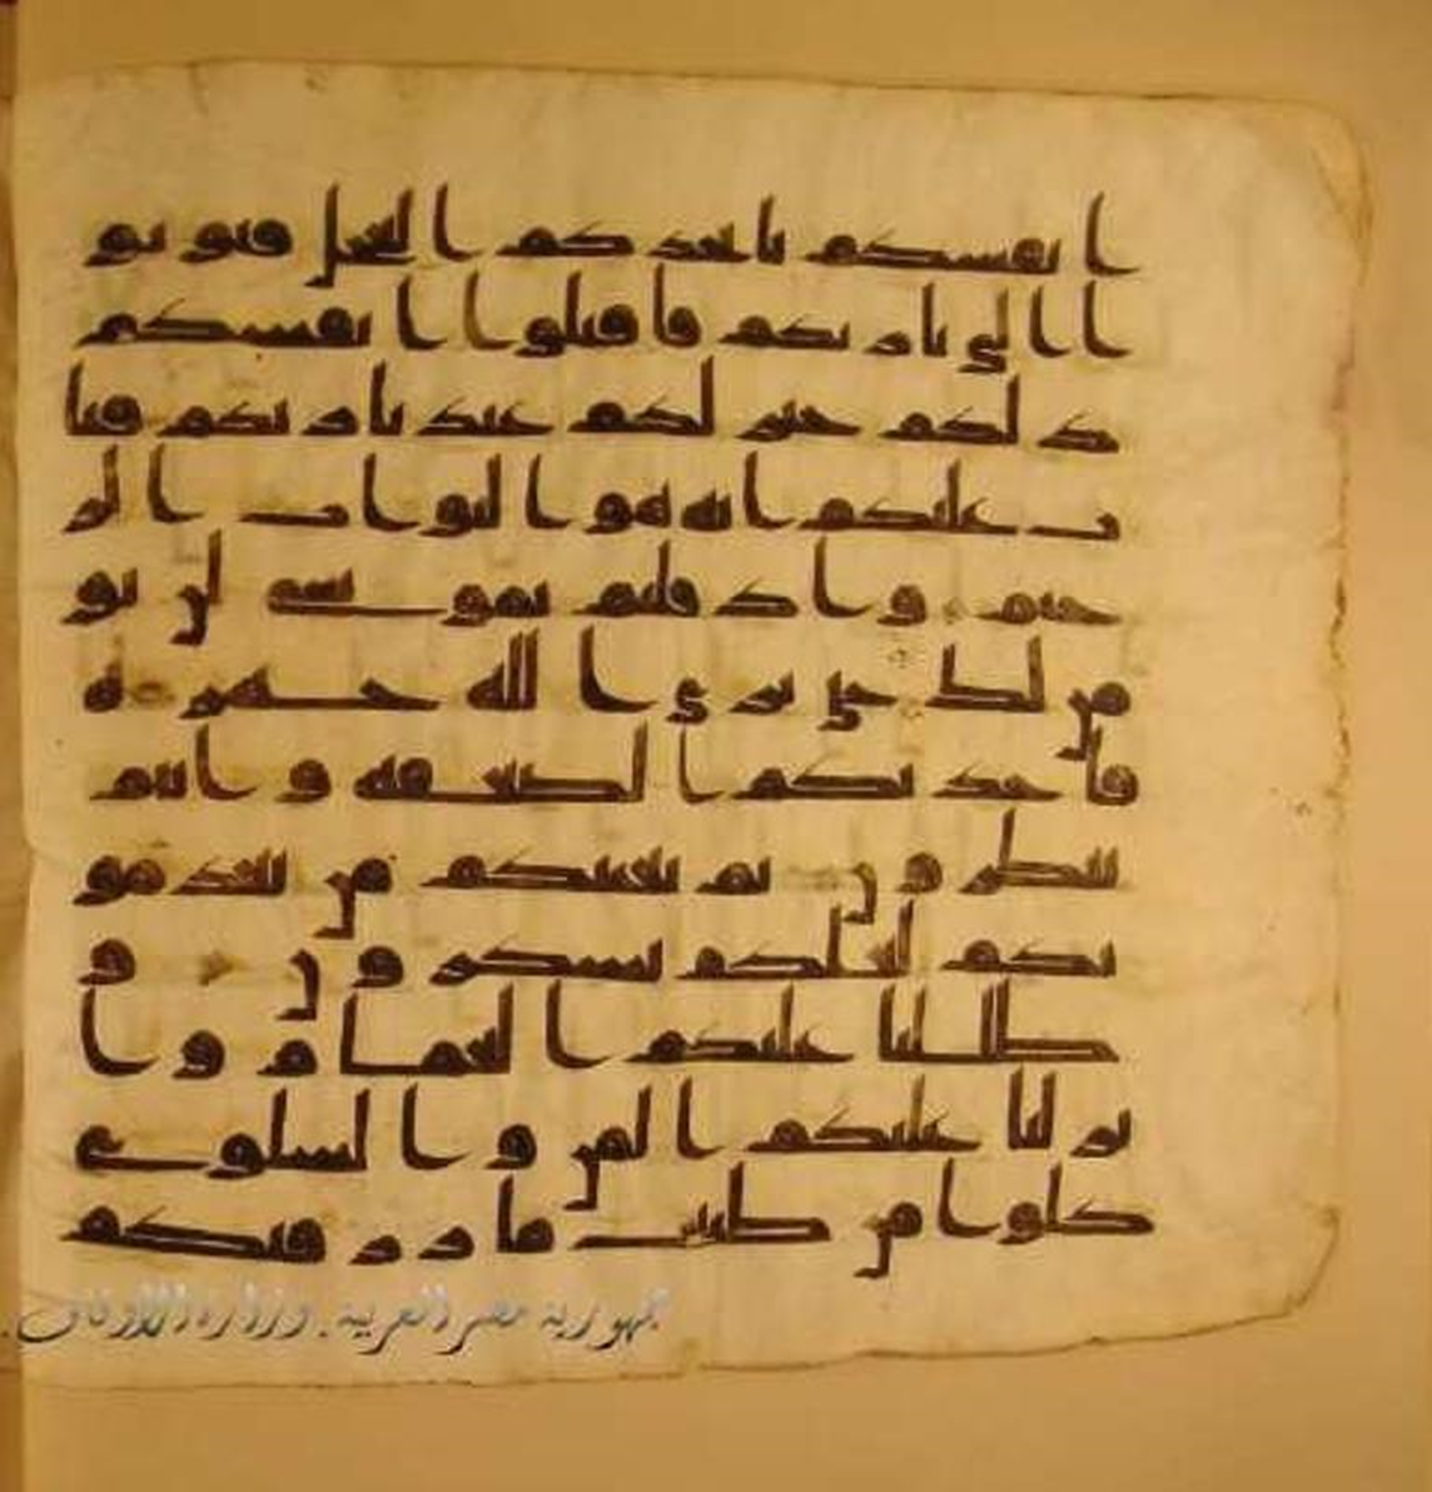 انفسكم باتخاذكم العجل فتوبو
ا الى بارئكم فاقتلوا انفسكم
ذلكم خير لكم عند بارئكم فتا
ب عليكم انه هو التواب الر
حيم واذ قلتم يموسى لن نو
من لك حتى نرى الله جهرة
فاخذتكم الصعقة وانتم
تنظرون ثم بعثنكم من بعد مو
تكم لعلكم تشكرون و
ظللنا عليكم الغمام وا
نزلنا عليكم المن والسلوى
كلوا من طيبت ما رزقنكم
جمهورية مصر العربية . وزارة الأوقاف .